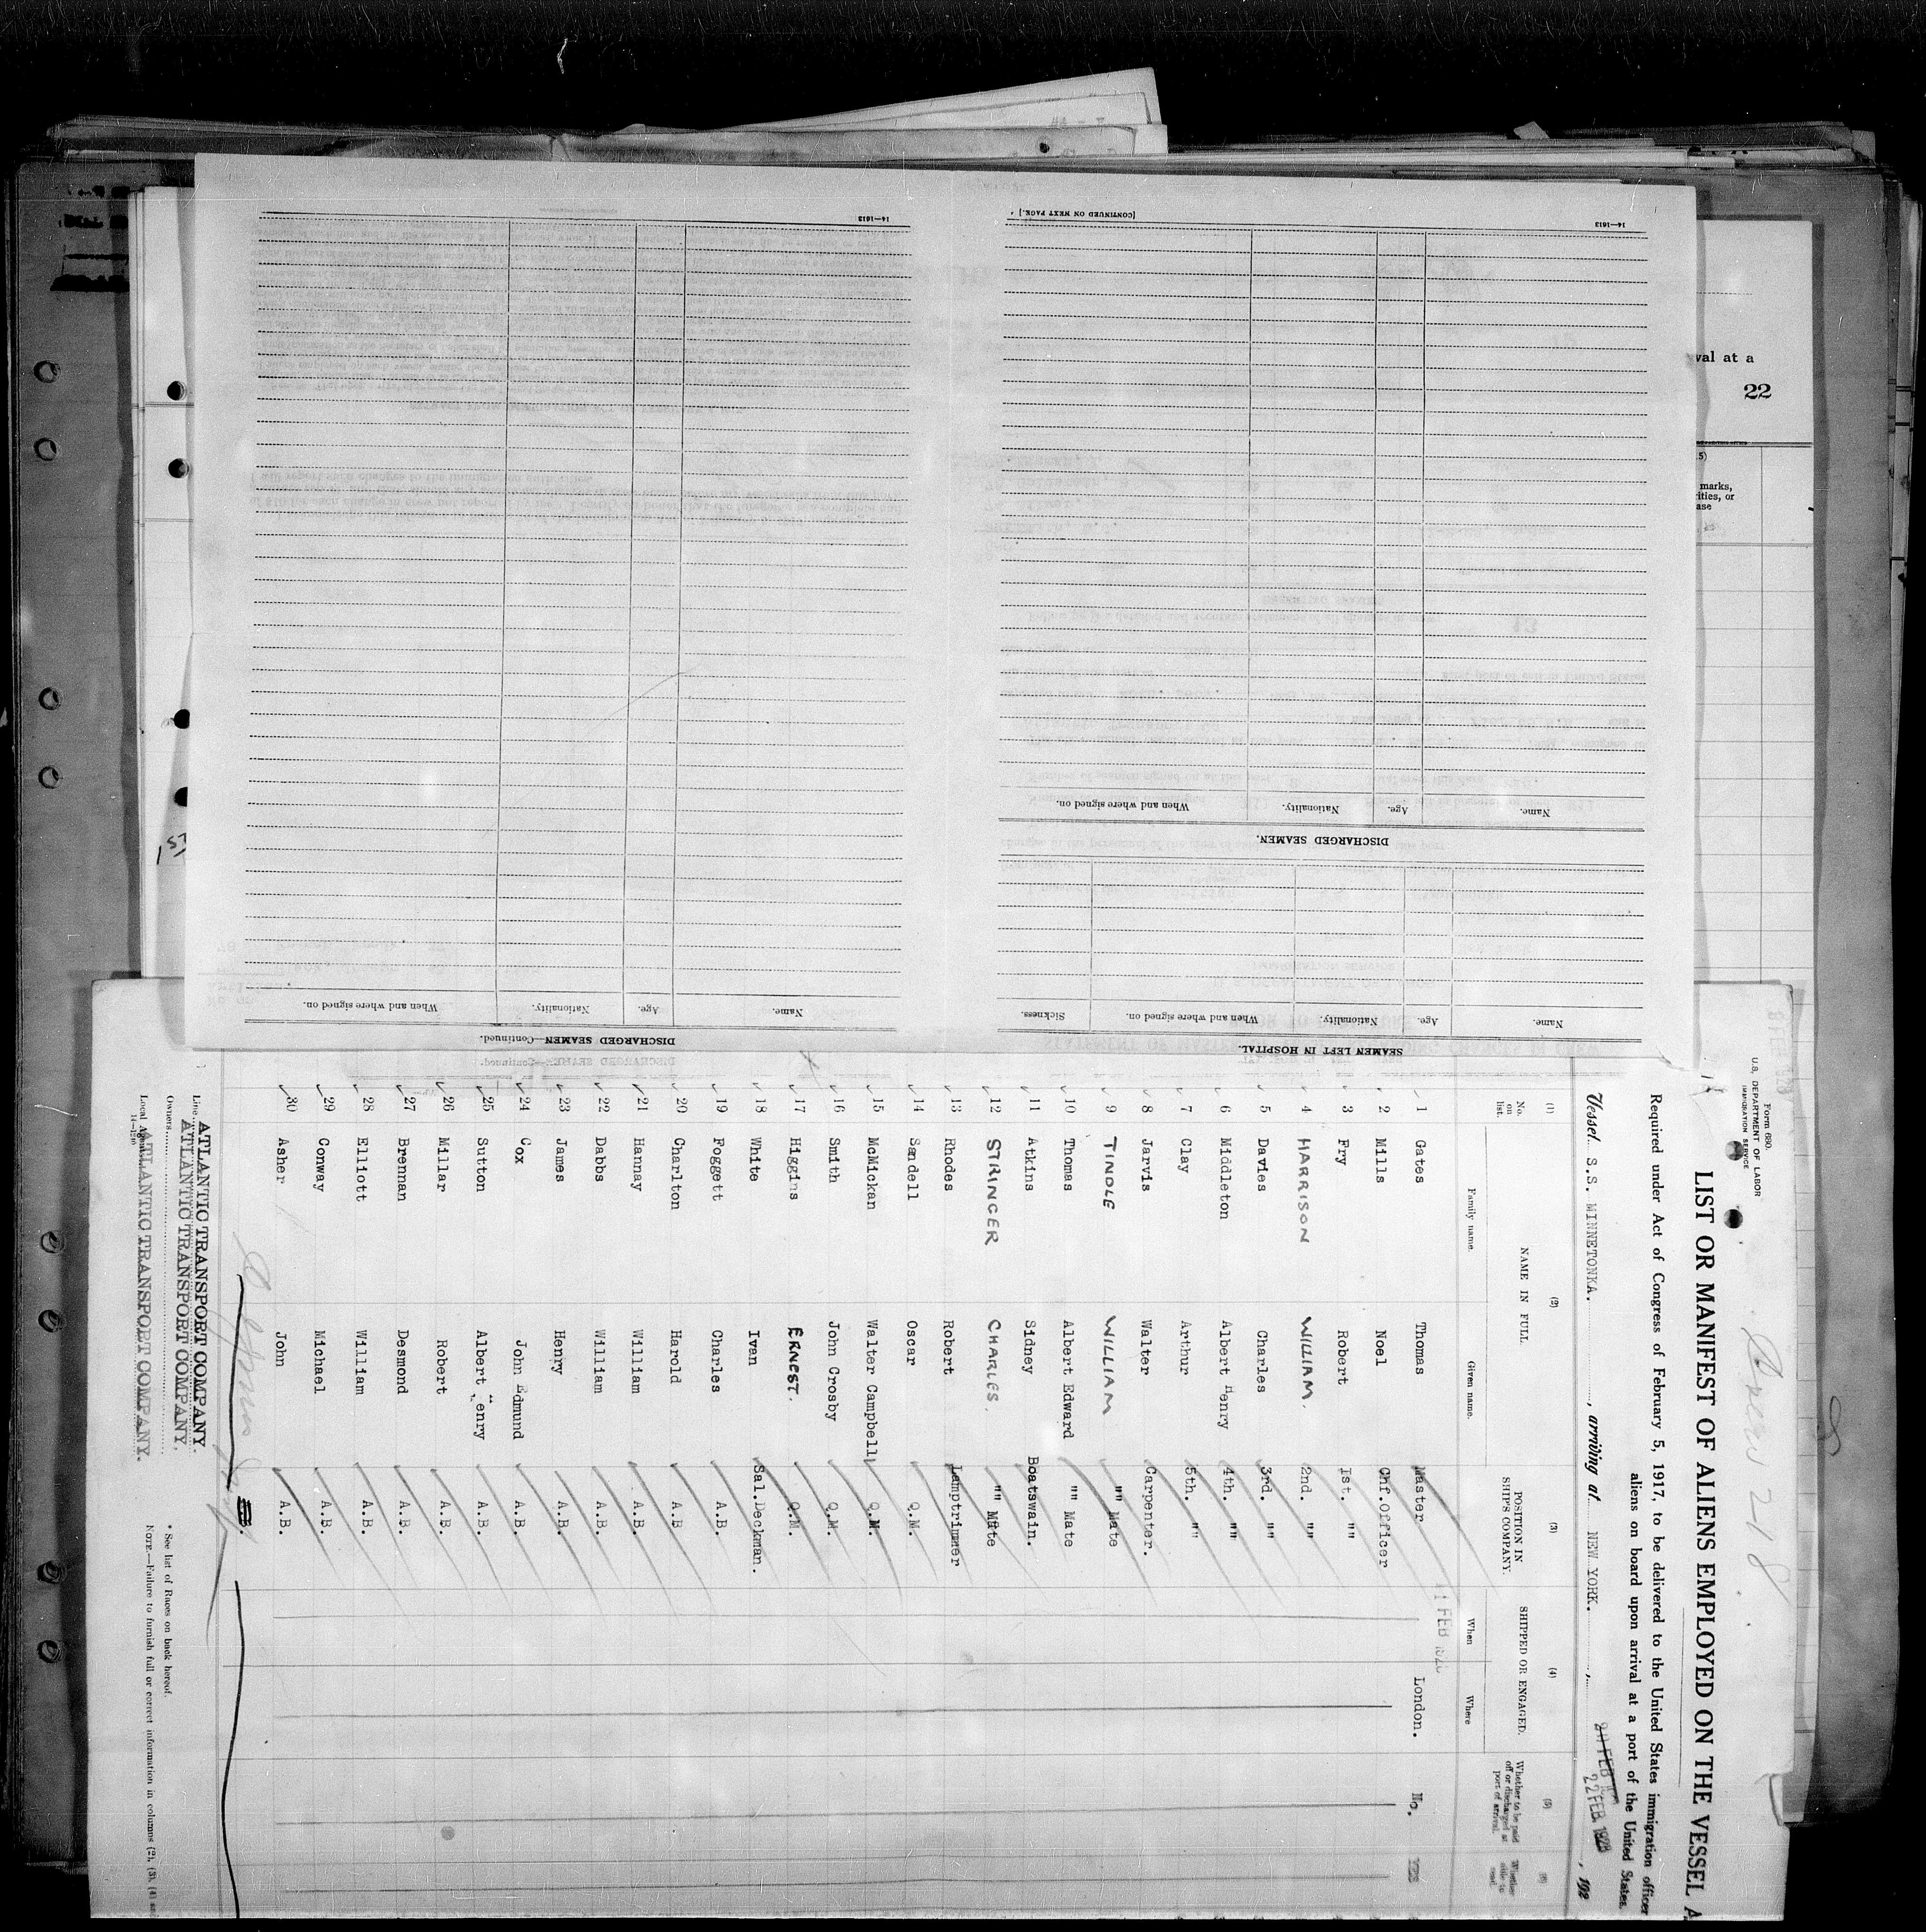 [CONTINUED ON NEXT PAGE.]
14—1613
14—1613
Name. Age. Nationality. When and where signed on.
DISCHARGED SEAMEN.
Name. Age. Nationality. When and where signed on. Sickness.
SEAMEN LEFT IN HOSPITAL.
Name. Age. Nationality. When and where signed on.
DISCHARGED SEAMEN—Continued.
val at a
22
marks,
1ST
Form 680.
U.S. DEPARTMENT OF LABOR
IMMIGRATION SERVICE
LIST OR MANIFEST OF ALIENS EMPLOYED ON THE VESSEL
Required under Act of Congress of February 5, 1917, to be delivered to the United States immigration officer
aliens on board upon arrival at a port of the United States
Vessel S.S. MINNETONKA., arriving at NEW YORK. 22 FEB 1928, 192
(1) (2) (3) (4) (5) (6)
No. on list. NAME IN FULL POSITION IN SHIP'S COMPANY. SHIPPED OR ENGAGED. Whether to be paid off or discharged at port of arrival. Whether able to read.
Family name. Given name. When Where
1 Gates Thomas Master London. No. YES
2 Mills Noel Chf.Officer
3 Fry Robert Ist. ""
4 HARRISON WILLIAM. 2nd. ""
5 Davies Charles 3rd. ""
6 Middleton Albert Henry 4th. ""
7 Clay Arthur 5th. ""
8 Jarvis Walter Carpenter.
9 TINDLE WILLIAM "" Mate
10 Thomas Albert Edward "" Mate
11 Atkins Sidney Boatswain.
12 STRINGER CHARLES. "" Mate
13 Rhodes Robert Lamptrimmer
14 Sandell Oscar Q.M.
15 McMickan Walter Campbell Q.M.
16 Smith John Crosby Q.M.
17 Higgins ERNEST. Q.M.
18 White Ivan Sal.Deckman.
19 Foggett Charles A.B.
20 Charlton Harold A.B
21 Hannay William A.B.
22 Dabbs William A.B.
23 James Henry A.B.
24 Cox John Edmund A.B.
25 Sutton Albert Henry A.B.
26 Millar Robert A.B.
27 Brennan Desmond A.B.
28 Elliott William A.B.
29 Conway Michael A.B.
30 Asher John A.B.
Line ATLANTIC TRANSPORT COMPANY.
Owners ATLANTIC TRANSPORT COMPANY.
Local Agents ATLANTIC TRANSPORT COMPANY.
* See list of Races on back hereof.
NOTE.—Failure to furnish full or correct information in columns (2), (3), (4)